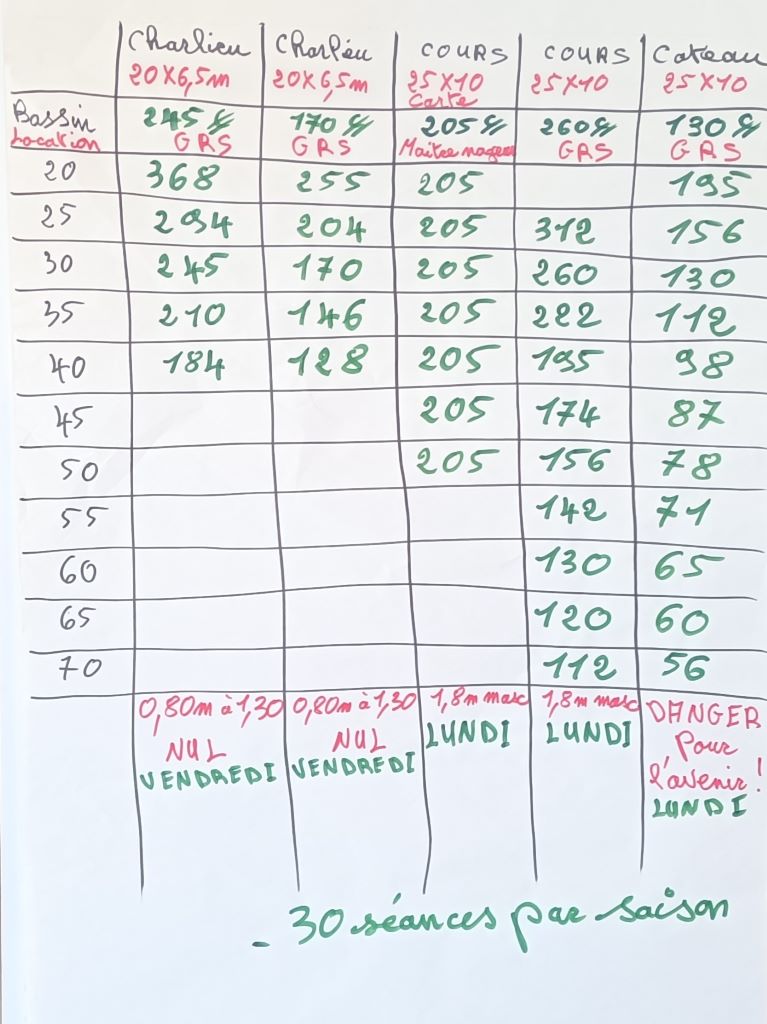 Charlieu Charlieu COURS COURS Coteau
20X6,5m 20X6,5m 25X10 25X10 25X10
Carte
Bassin 245 170 205 260 130
Location GRS GRS Maitre nageur GRS GRS
20 368 255 205 195
25 294 204 205 312 156
30 245 170 205 260 130
35 210 146 205 222 112
40 184 128 205 195 98
45 205 174 87
50 205 156 78
55 142 71
60 130 65
65 120 60
70 112 56
0,80m à 1,30 0,80m à 1,30 1,8m maxi 1,8m maxi DANGER
NUL NUL LUNDI LUNDI pour
VENDREDI VENDREDI l'avenir !
LUNDI
- 30 séances par saison